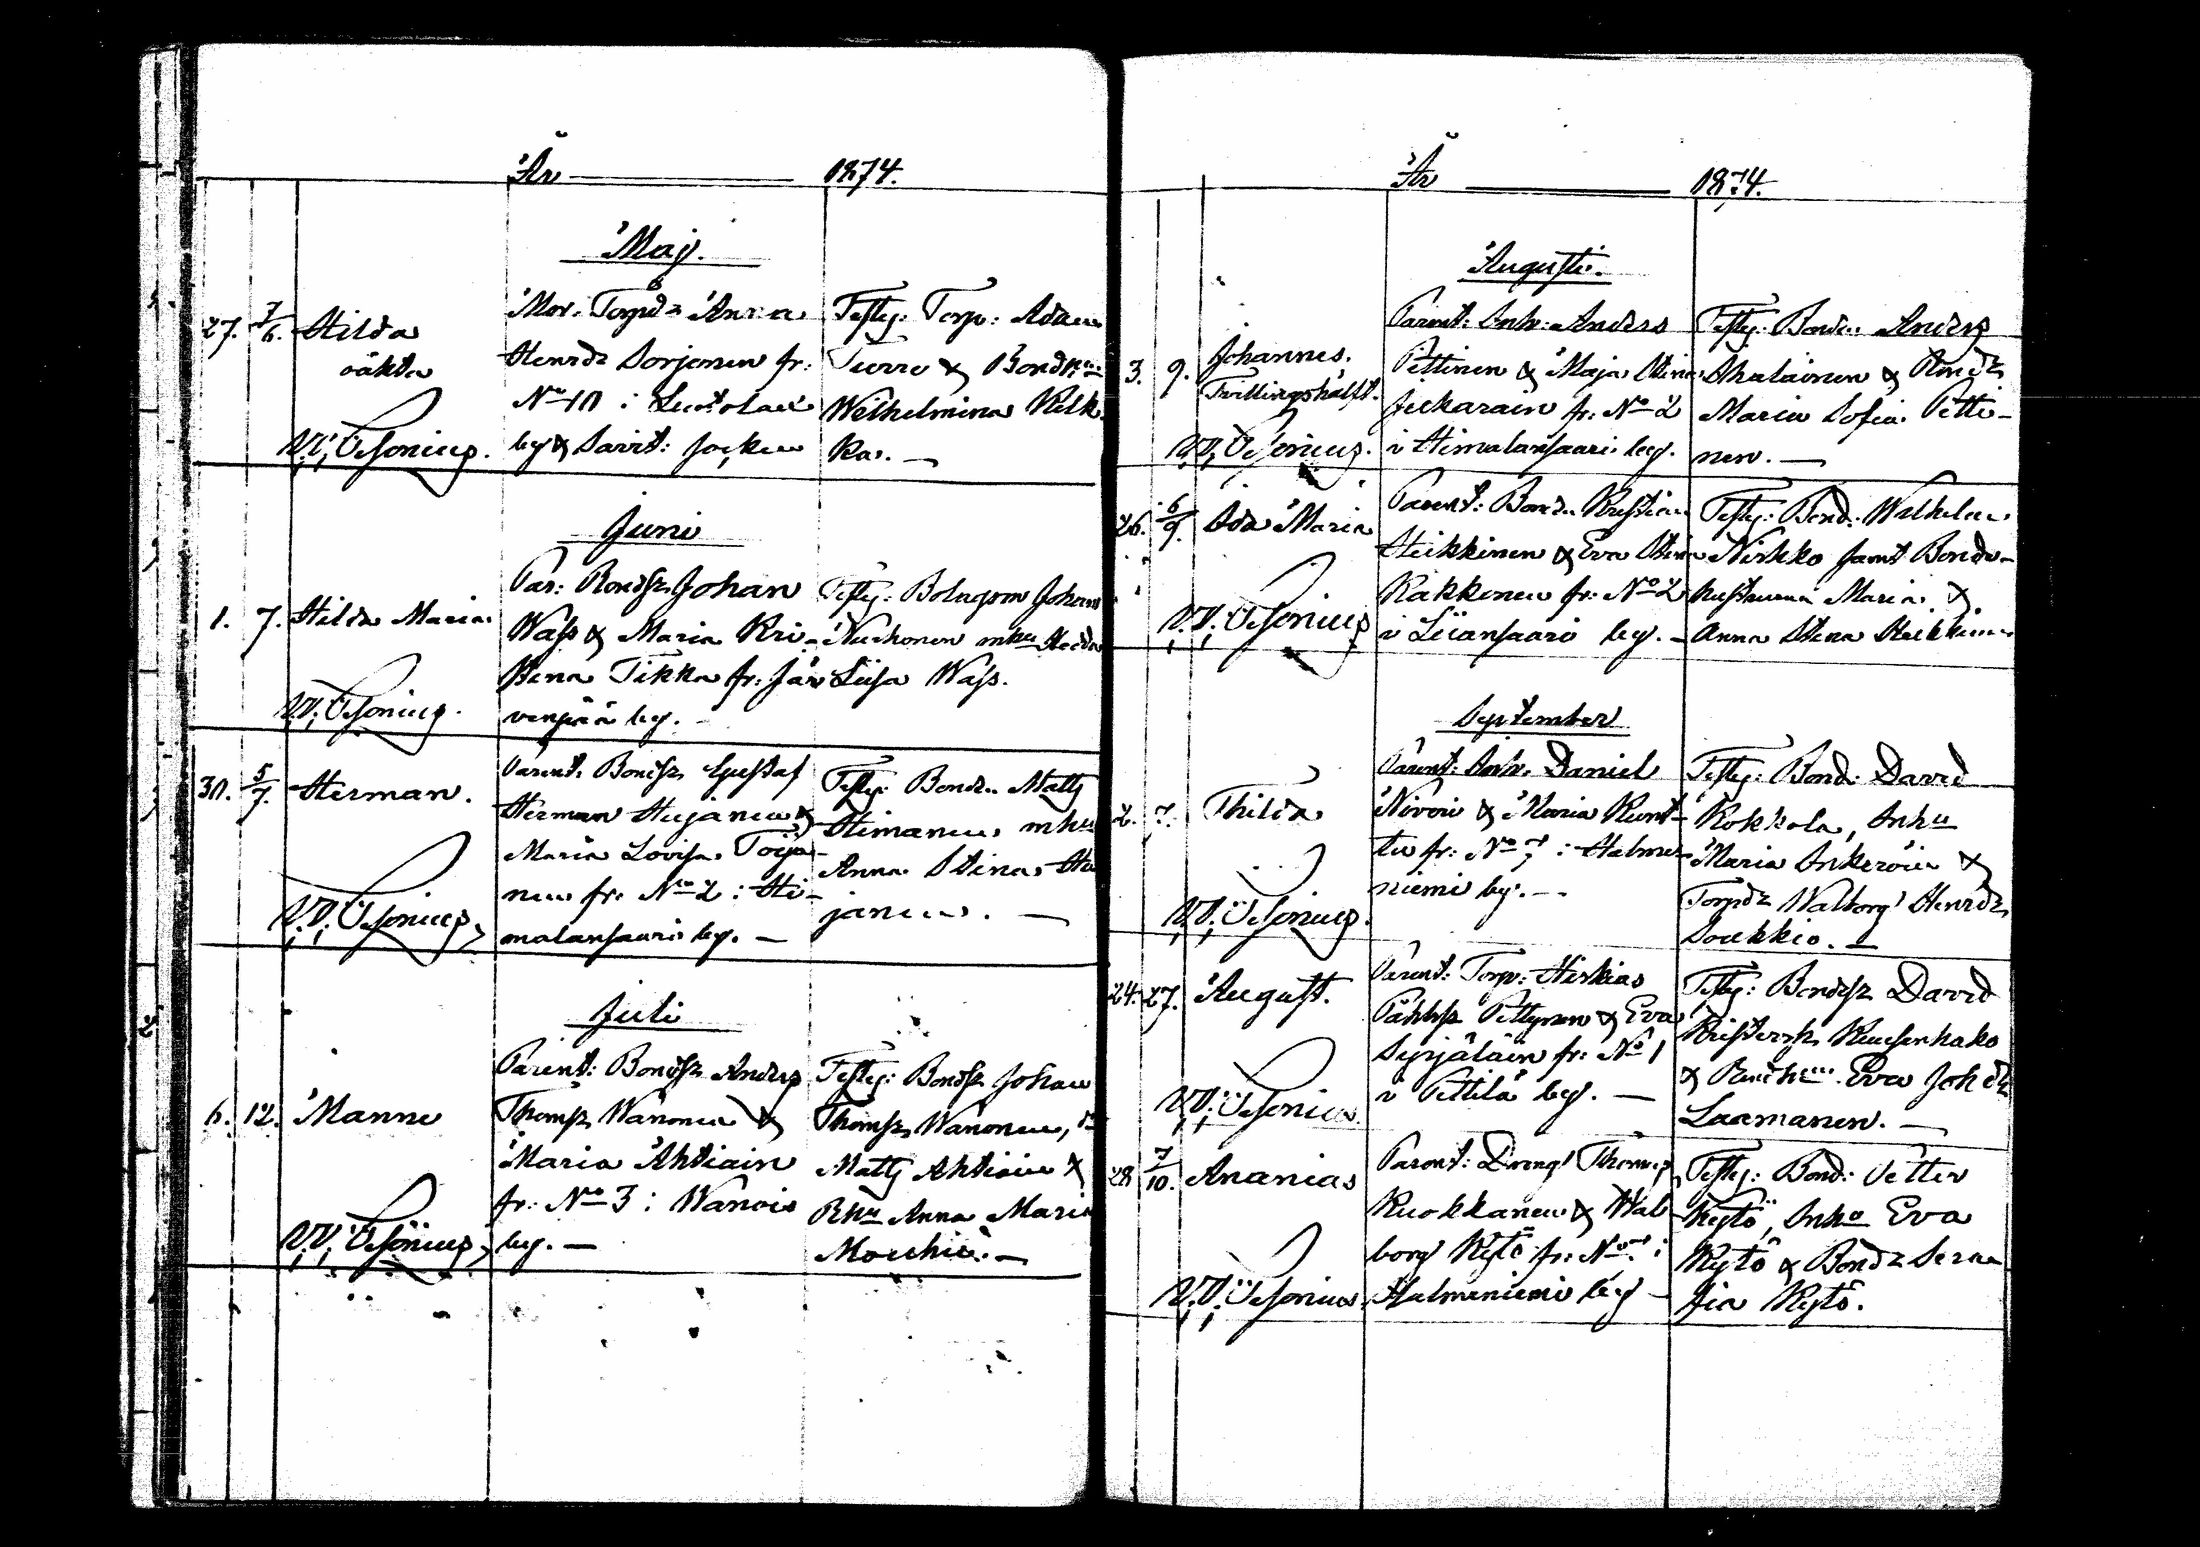 År 1874.
Maj.
27. 7/6. Hilda
oäkta
V.V. Vesonius.
Mor. Torpdr Anna
Henrdr Sorjonen fr.
No 10 i Luotolax
by & Savit: socken
Testes: Torp: Adam
Tierro & Bondhu
Wilhelmina Kelk
ka. —
Juni
1. 7. Hilda Maria
V.V. Vesonius.
Par: Bondsr Johan
Wass & Maria Kri-
stina Tikka fr: Jär
venpää by.
Testes: Bolagsm Johan
Nuchonen mhu Hedda
Liisa Wass.
30. 5/7. Herman.
V.V. Vesonius
Parent: Bondsr Gustaf
Herman Hujanen &
Maria Lovisa Toija-
nen fr. No 2 i Hi-
malansaari by. —
Testes: Bonden Matts
Himanen mhu
Anna Stina Hu
janen. —
Juli
6. 12. Manne
V.V. Vesonius
Parent: Bondsr Anders
Thomsr Wänonen &
Maria Ahtiain
fr. No 3 i Wanois
by. —
Testes: Bondsr Johan
Thomsr Wänonen,
Matts Ahtiain &
Bhu Anna Maria
Mouhin. —
År 1874.
Augusti.
3. 9. Johannes.
Tvillingshälft.
V.V. Vesonius.
Parent: Inh: Anders
Pettinen & Maja Stina
Jickarain fr: No 2
i Himalansaari by.
Testes: Bonden Anders
Ahalainen & Bonddr
Maria Sofia Petti-
nen. —
26. 6/9. Ida Maria
V.V. Vesonius
Parent: Bonden Kristian
Heikkinen & Eva Stina
Kakkonen fr: No 2
i Liiansaari by. —
Testes: Bond: Wilhelm
Nirkko samt Bonde-
hustrurna Maria &
Anna Stina Heikkinen
September
2. 7. Thilda
V.V. Vesonius.
Parent: Inh. Daniel
Nivoin & Maria Kunt-
tu fr: No 7 i Halme-
niemi by. —
Testes: Bond: David
Kokkola, Inhu
Maria Inkeröin &
Torpdr Walborg Henrdr
Soukkio. —
24. 27. August.
V.V. Vesonius.
Parent: Torp: Hiskias
Påhlsr Pettynen & Eva
Syrjäläin fr: No 1
i Pettilä by. —
Testes: Bondesr David
Kristersr Kuusenhako
& Bondhu Eva Johdr
Laamanen. —
28 7/10. Ananias
V.V. Vesonius.
Parent: Dreng Thomas
Kuokkanen & Wal
borg Kytö fr: No 7 i
Halmeniemi by —
Testes: Bond: Petter
Kytö, Inhu Eva
Kytö & Bonddr Sera
fia Kytö.